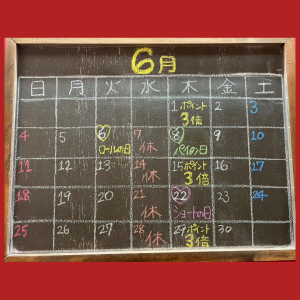 6月
日 月 火 水 木 金 土
1 ポイント 3倍 2 3
4 5 6 ロールの日 7 休 8 パイの日 9 10
11 12 13 14 休 15 ポイント 3倍 16 17
18 19 20 21 休 22 ショートの日 23 24
25 26 27 28 休 29 ポイント 3倍 30